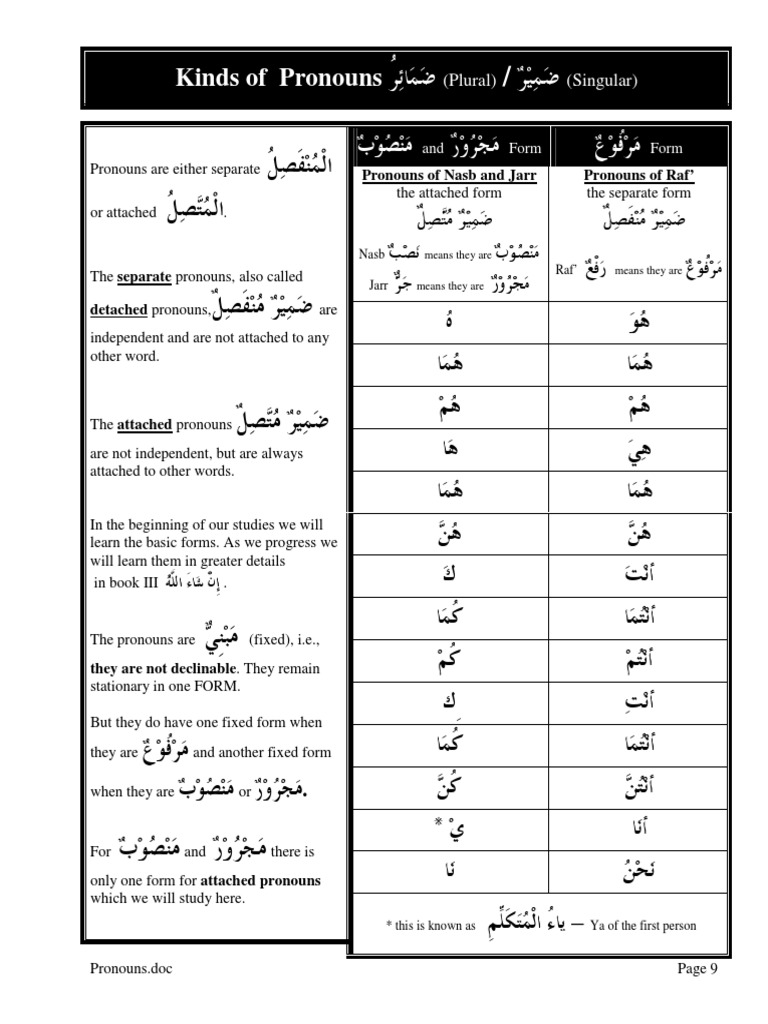 Kinds of Pronouns ضَمَائِرُ (Plural) / ضَمِيْرٌ (Singular)
Pronouns are either separate الْمُنْفَصِلُ
or attached الْمُتَّصِلُ.
The separate pronouns, also called
detached pronouns, ضَمِيْرٌ مُنْفَصِلٌ are
independent and are not attached to any
other word.
The attached pronouns ضَمِيْرٌ مُتَّصِلٌ
are not independent, but are always
attached to other words.
In the beginning of our studies we will
learn the basic forms. As we progress we
will learn them in greater details
in book III إِنْ شَاءَ اللَّهُ .
The pronouns are مَبْنِيٌّ (fixed), i.e.,
they are not declinable. They remain
stationary in one FORM.
But they do have one fixed form when
they are مَرْفُوْعٌ and another fixed form
when they are مَنْصُوْبٌ or مَجْرُوْرٌ.
For مَنْصُوْبٌ and مَجْرُوْرٌ there is
only one form for attached pronouns
which we will study here.
مَنْصُوْبٌ and مَجْرُوْرٌ Form
مَرْفُوْعٌ Form
Pronouns of Nasb and Jarr
the attached form
ضَمِيْرٌ مُتَّصِلٌ
Nasb نَصْبٌ means they are مَنْصُوْبٌ
Jarr جَرٌّ means they are مَجْرُوْرٌ
Pronouns of Raf’
the separate form
ضَمِيْرٌ مُنْفَصِلٌ
Raf’ رَفْعٌ means they are مَرْفُوْعٌ
هُ هُوَ
هُمَا هُمَا
هُمْ هُمْ
هَا هِيَ
هُمَا هُمَا
هُنَّ هُنَّ
كَ أَنْتَ
كُمَا أَنْتُمَا
كُمْ أَنْتُمْ
كِ أَنْتِ
كُمَا أَنْتُمَا
كُنَّ أَنْتُنَّ
يْ * أَنَا
نَا نَحْنُ
* this is known as يَاءُ الْمُتَكَلِّمِ – Ya of the first person
Pronouns.doc Page 9